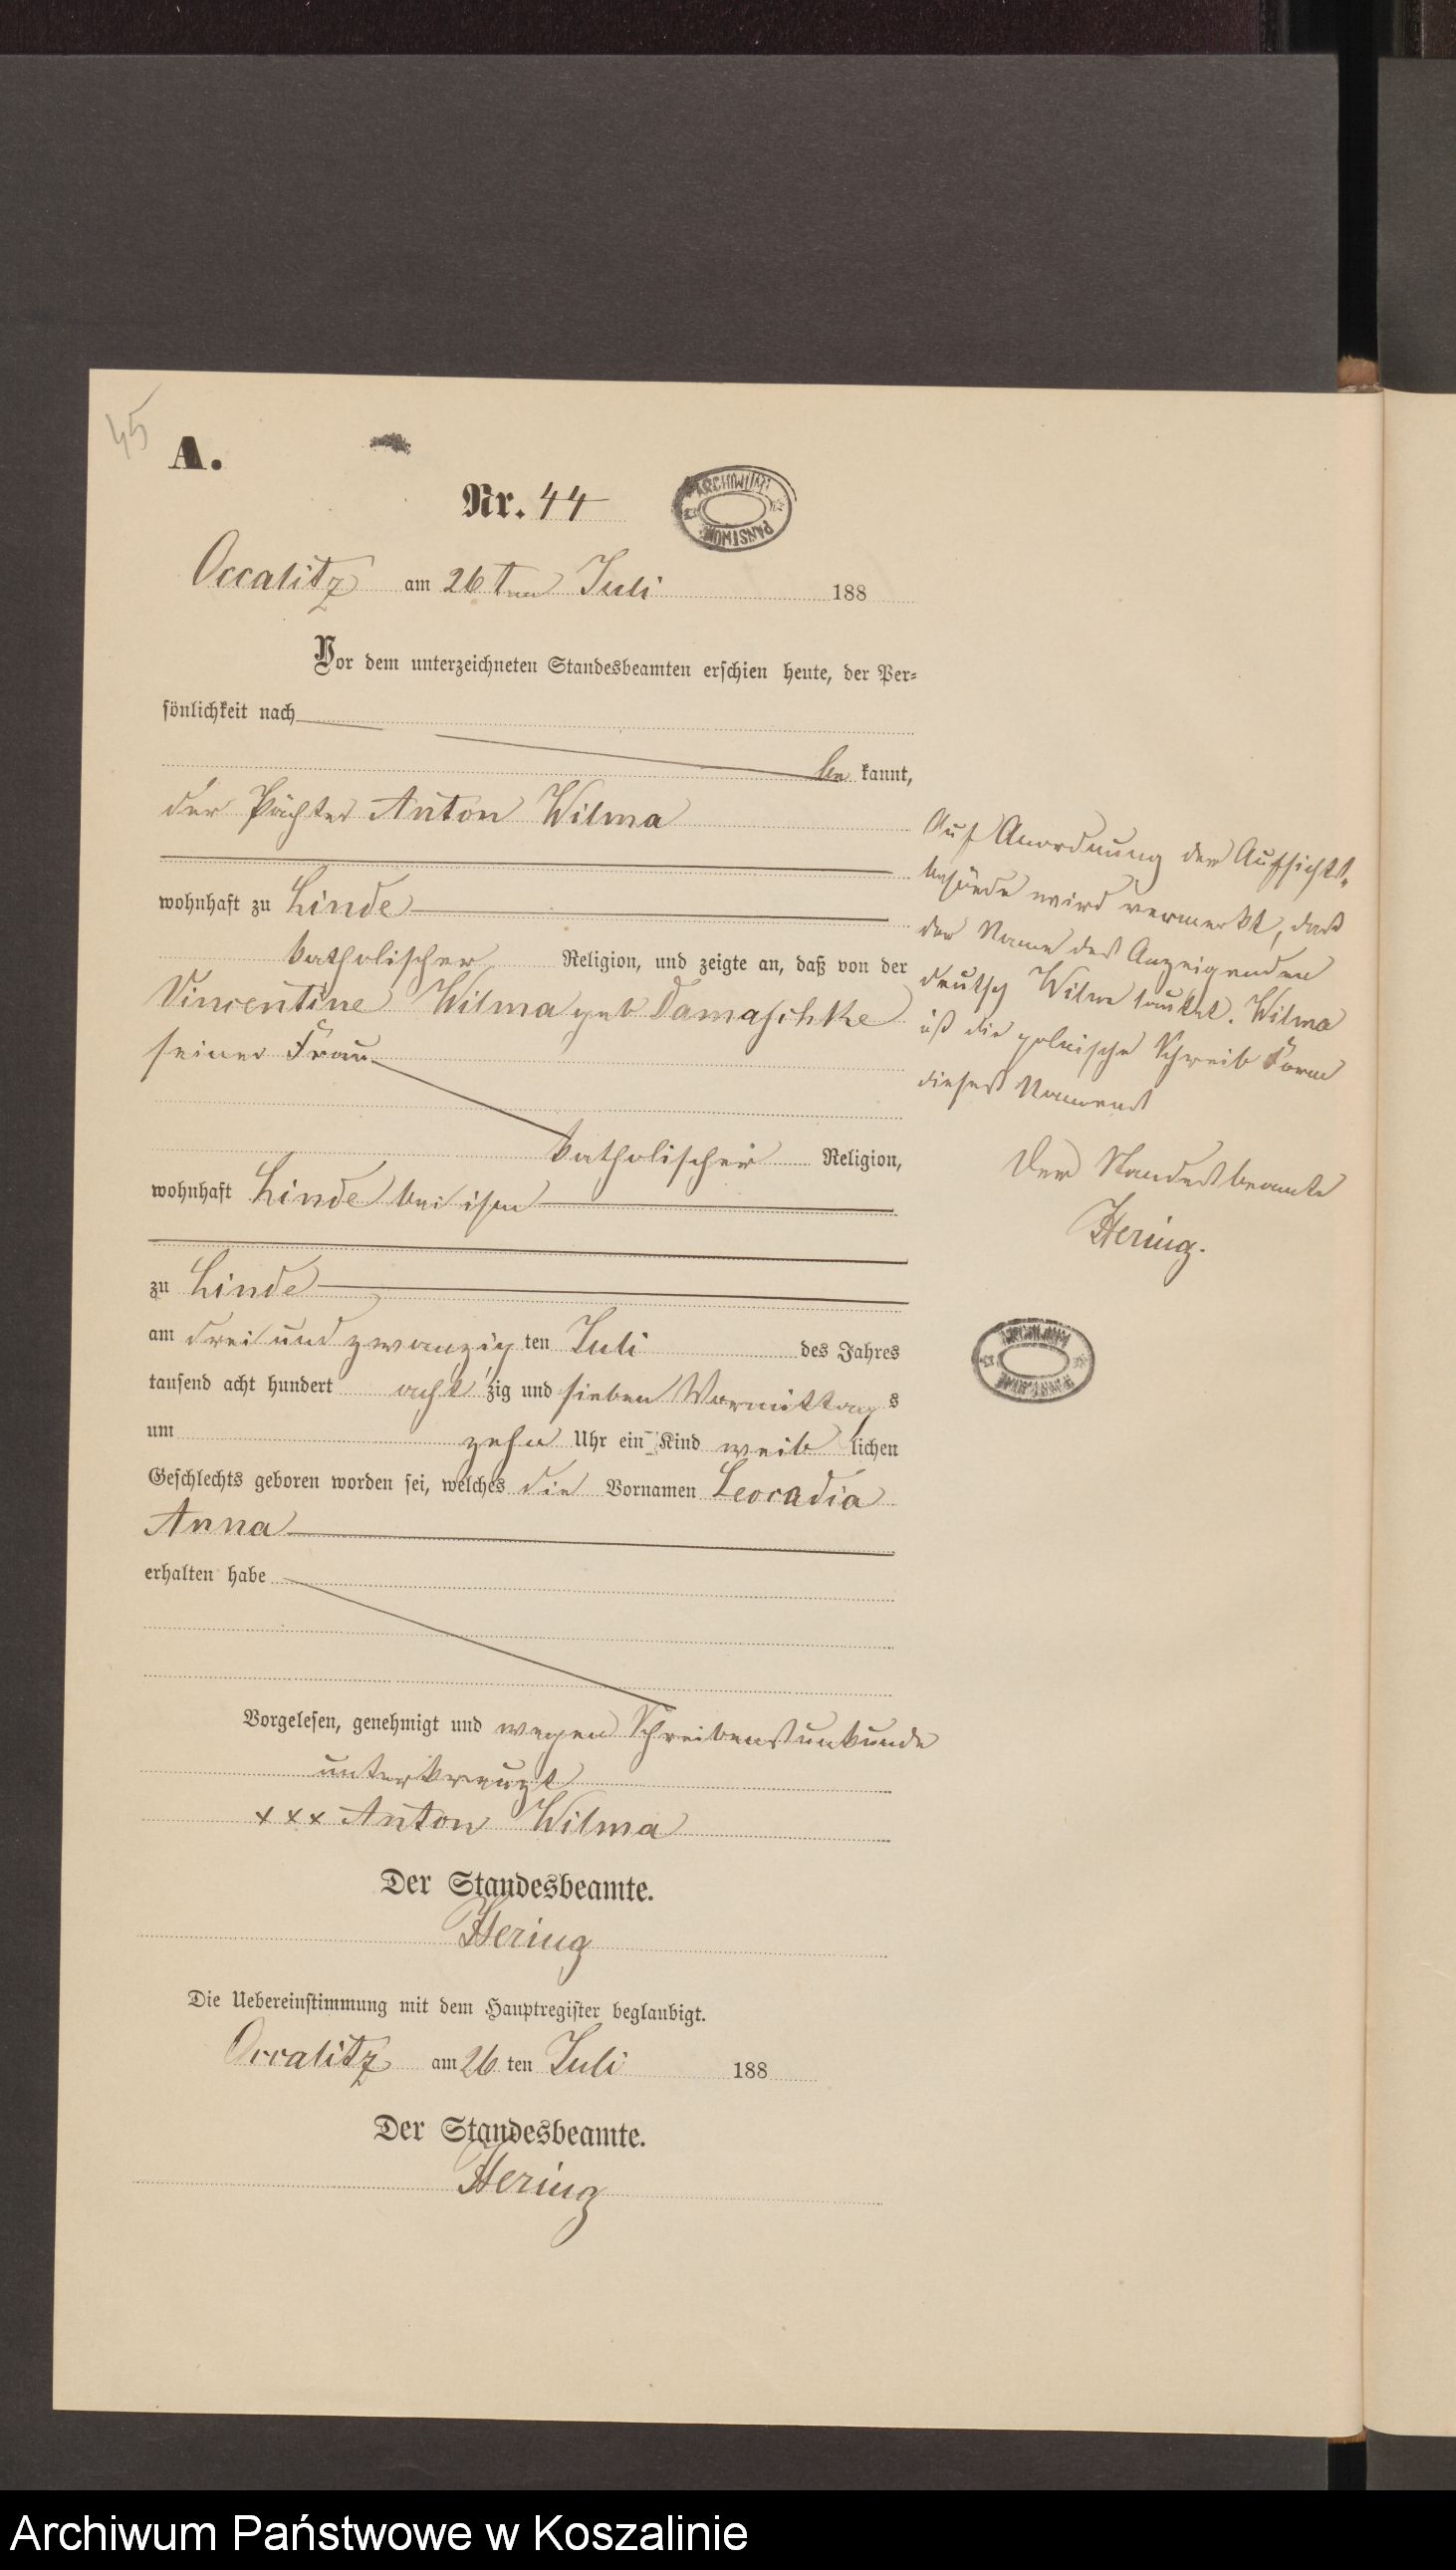 45
A.
Nr. 44
ARCHIWUM PAŃSTWOWE
Occalitz am 26ten Juli 188
Vor dem unterzeichneten Standesbeamten erschien heute, der Per=
sönlichkeit nach
be kannt,
der Pächter Anton Wilma
wohnhaft zu Linde
katholischer Religion, und zeigte an, daß von der
Vincentine Wilma geb Damaschke
seiner Frau
katholischer Religion,
wohnhaft Linde bei ihm
zu Linde
am drei und zwanzig ten Juli des Jahres
tausend acht hundert acht zig und sieben Vormittag s
um zehn Uhr ein Kind weib lichen
Geschlechts geboren worden sei, welches die Vornamen Leocadia
Anna
erhalten habe
Vorgelesen, genehmigt und wegen Schreibensunkunde
unterkreuzt
xxx Anton Wilma
Der Standesbeamte.
Hering
Die Uebereinstimmung mit dem Hauptregister beglaubigt.
Occalitz am 26 ten Juli 188
Der Standesbeamte.
Hering
Auf Anordnung der Aufsichts-
behörde wird vermerkt, daß
der Name des Anzeigenden
deutsch Wilm lautet. Wilma
ist die polnische Schreib Form
dieses Namens
Der Standesbeamte
Hering.
ARCHIWUM PAŃSTWOWE
Archiwum Państwowe w Koszalinie